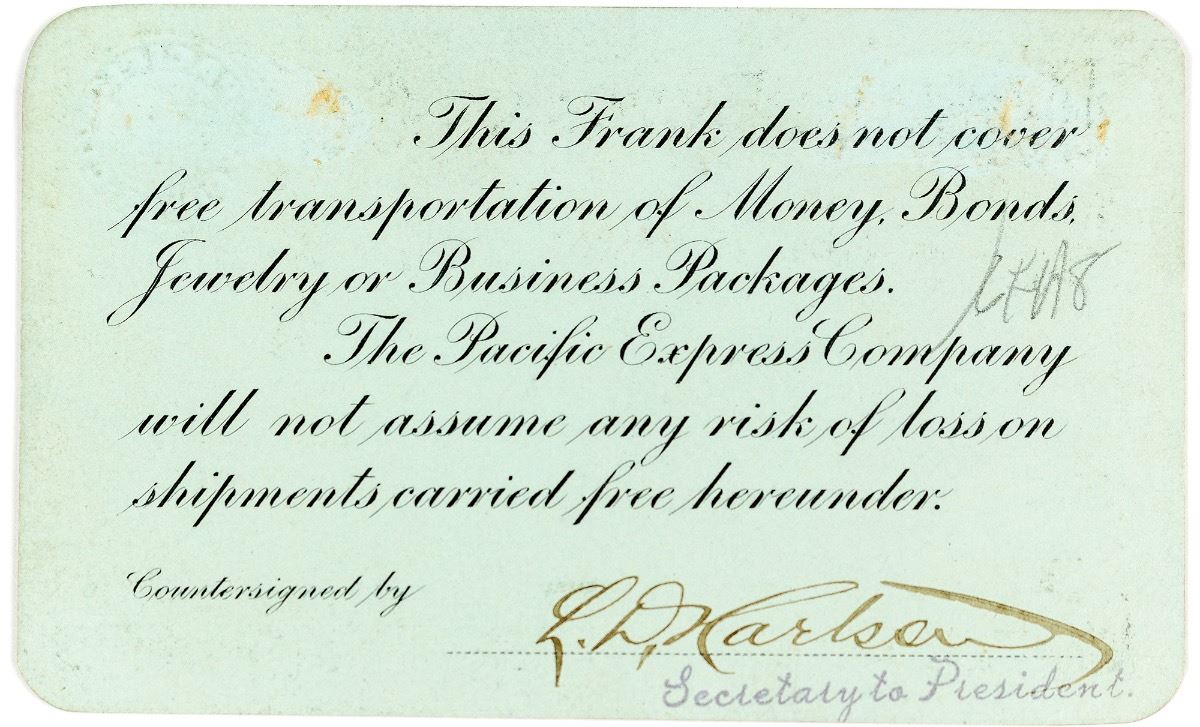 This Frank does not cover
free transportation of Money, Bonds,
Jewelry or Business Packages.
The Pacific Express Company
will not assume any risk of loss on
shipments carried free hereunder.
Countersigned by
L. D. Karlson
Secretary to President.